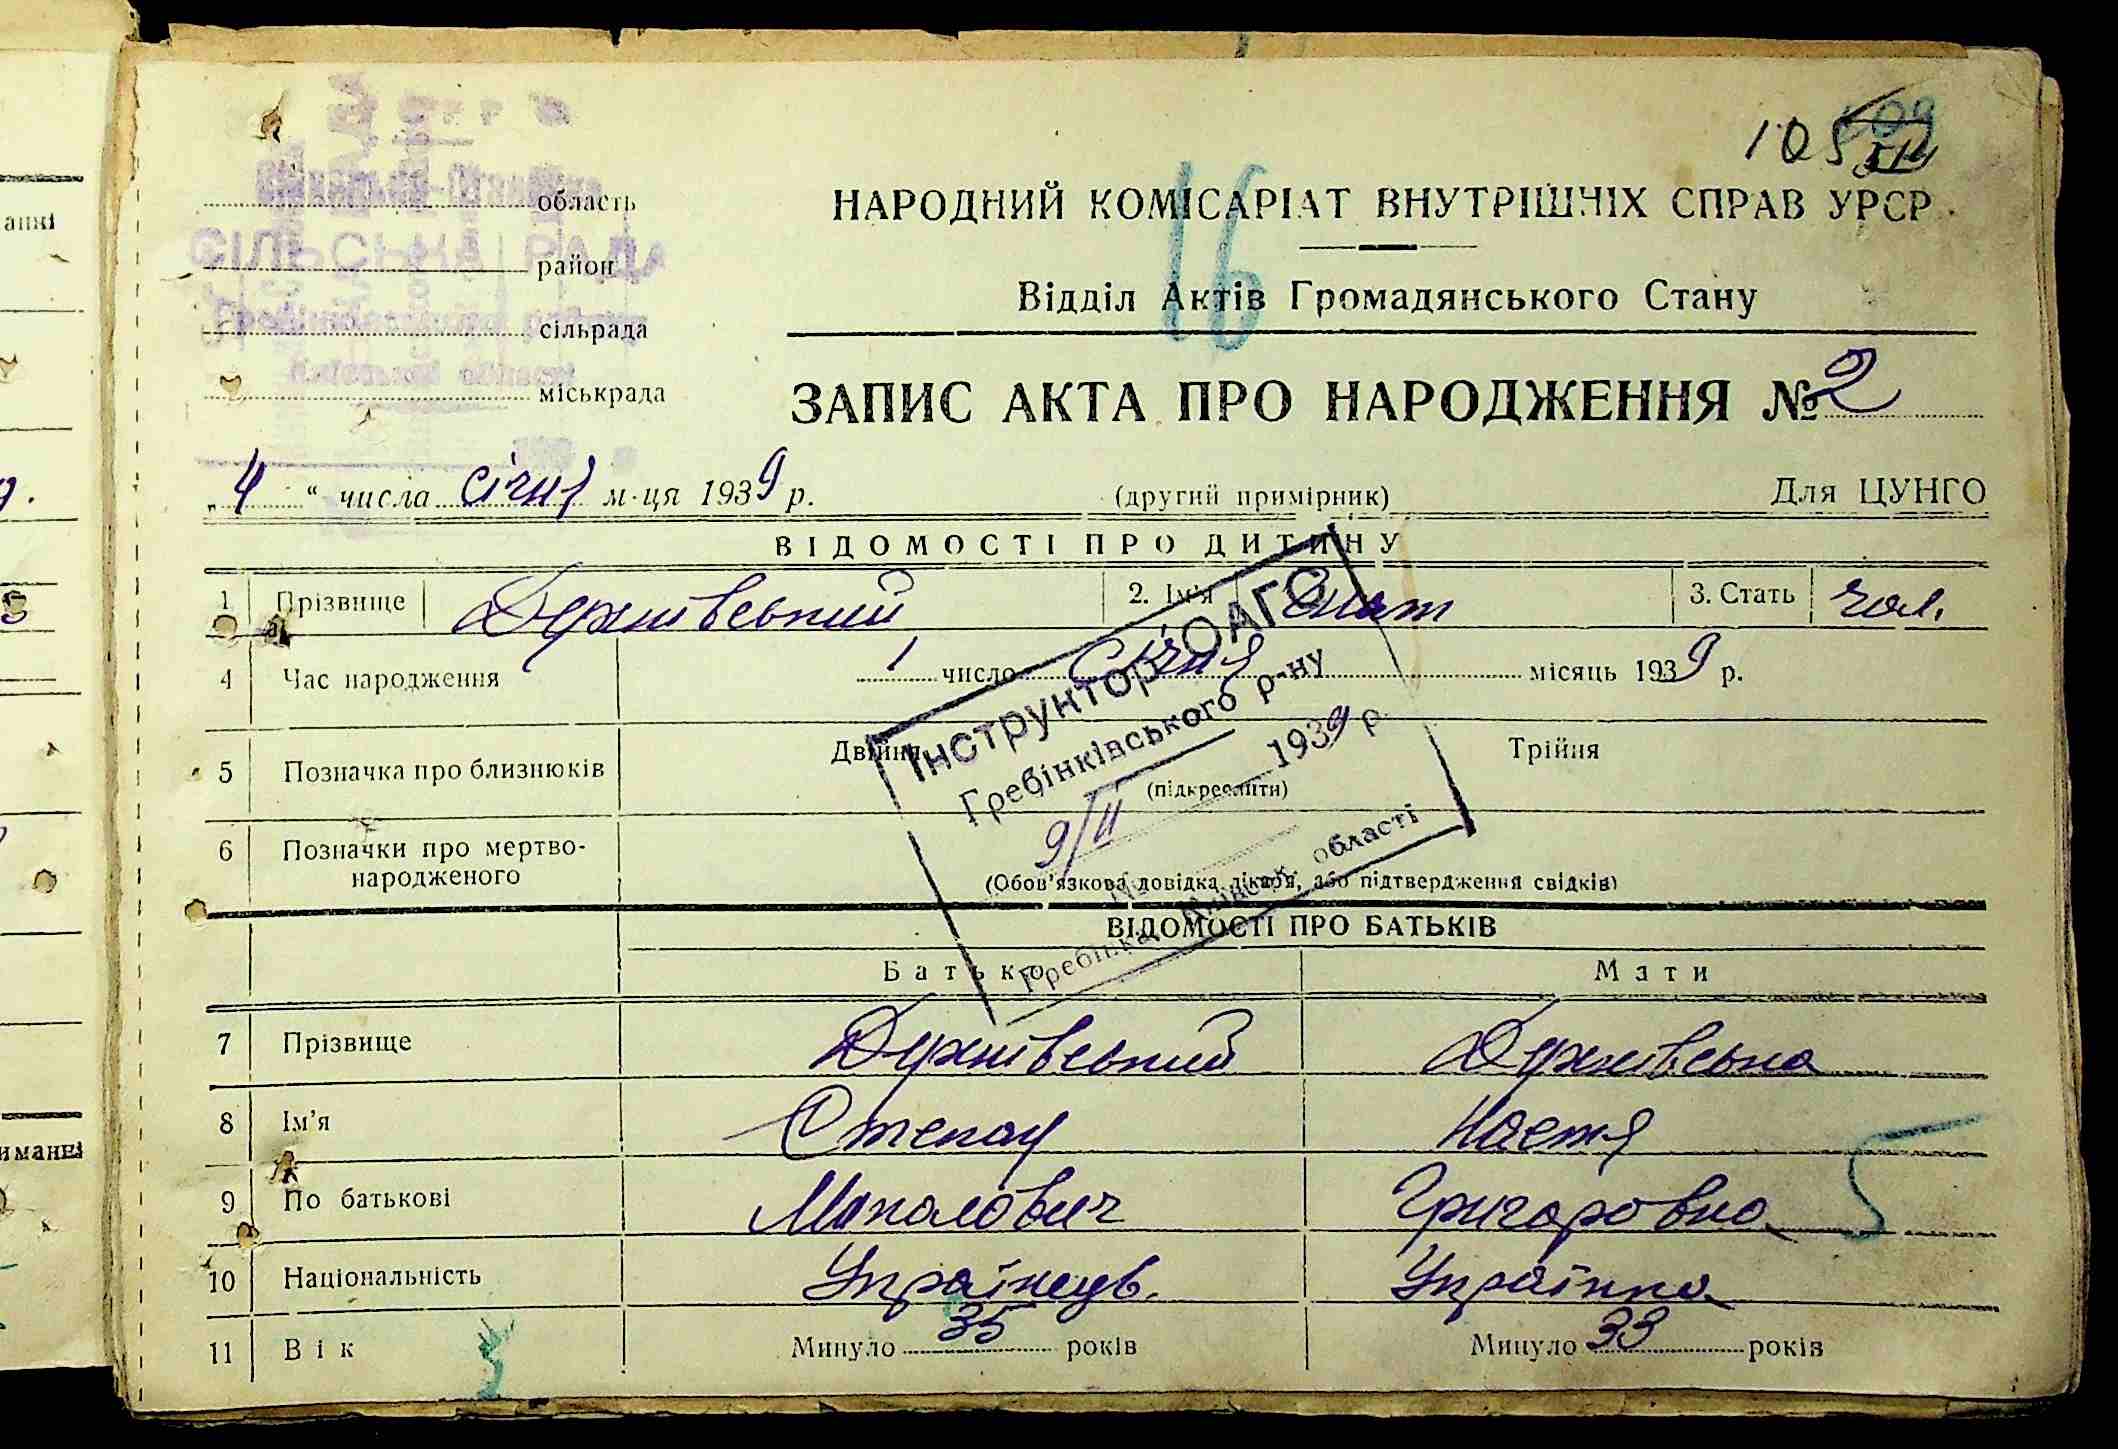 105
НАРОДНИЙ КОМІСАРІАТ ВНУТРІШНІХ СПРАВ УРСР
16
Відділ Актів Громадянського Стану
область
СІЛЬСЬКА РАДА
район
сільрада
міськрада
ЗАПИС АКТА ПРО НАРОДЖЕННЯ № 2
„4“ числа січня м-ця 1939 р. (другий примірник) Для ЦУНГО
ВІДОМОСТІ ПРО ДИТИНУ
1 Прізвище 2. Ім'я 3. Стать чол.
4 Час народження 1 число Січня місяць 1939 р.
5 Позначка про близнюків Двійня (підкреслити) Трійня
6 Позначки про мертвонародженого
(Обов'язкова довідка лікаря, або підтвердження свідків)
Інструктор ОАГС
Гребінківського р-ну
9/II 1939 р.
Гребінка, Київськ. області
ВІДОМОСТІ ПРО БАТЬКІВ
Батько Мати
7 Прізвище
8 Ім'я Степан Настя
9 По батькові Григоровна
10 Національність Українець. Українка
11 Вік Минуло 35 років Минуло 33 років
5
анні
иманні